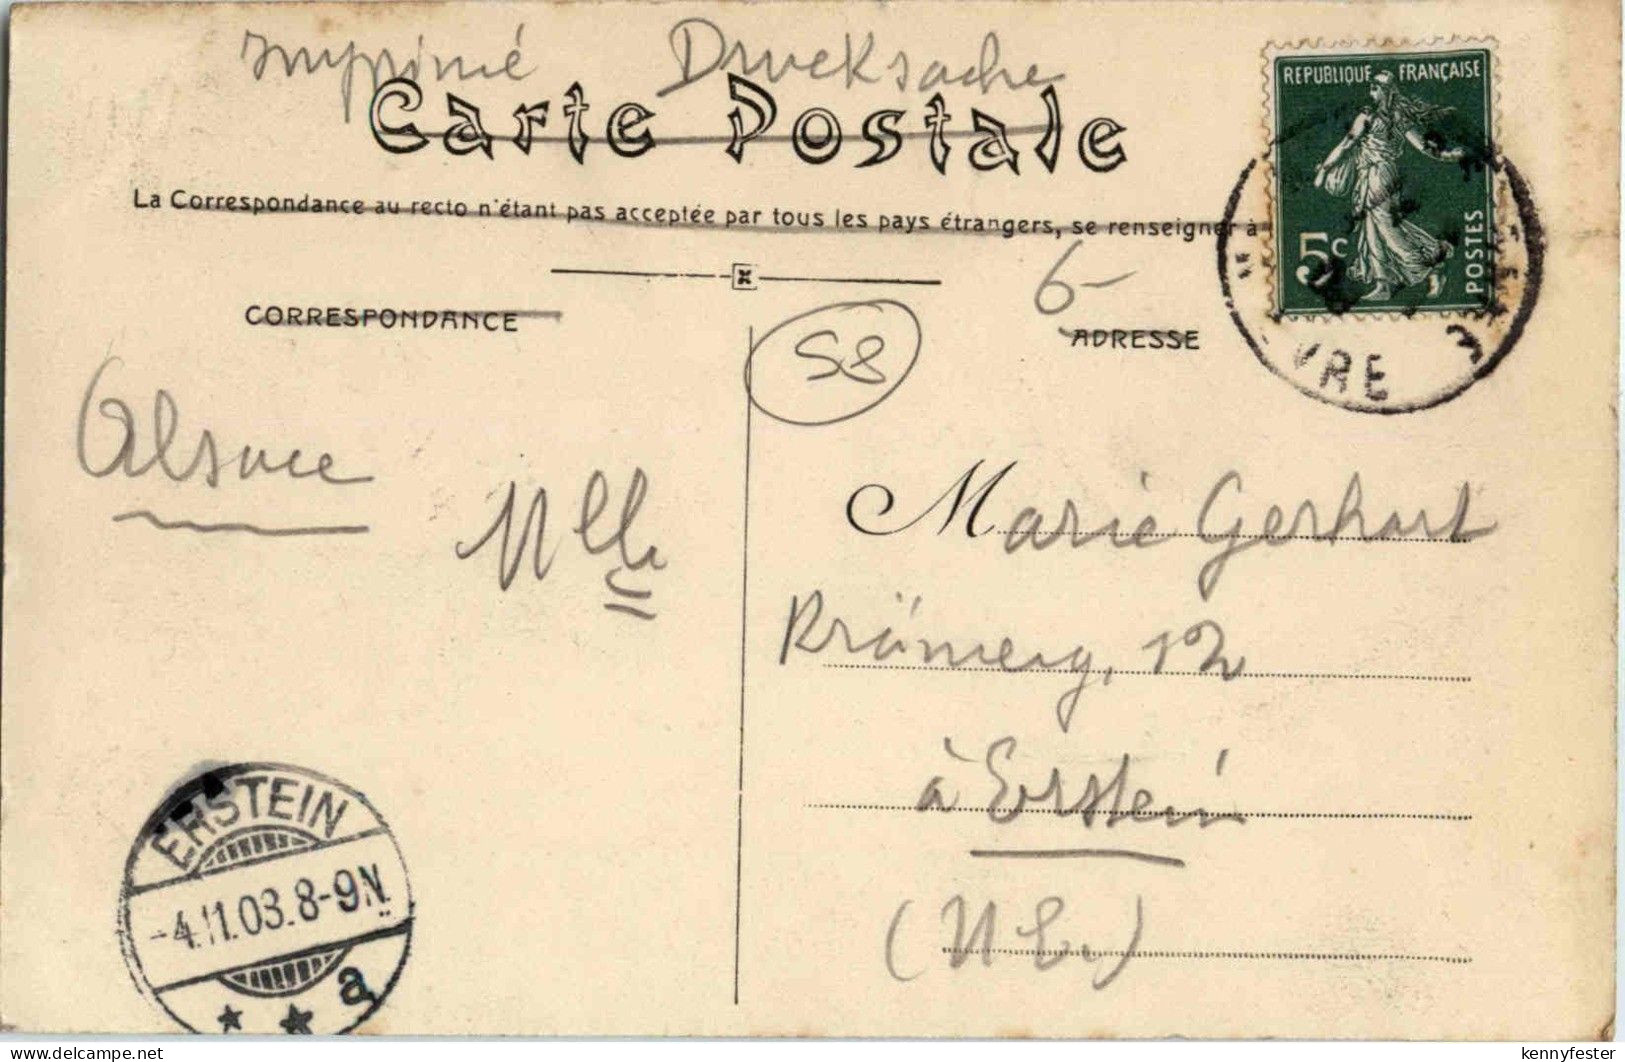 Imprimé Drucksache
Carte Postale
RÉPUBLIQUE FRANÇAISE
5c
POSTES
La Correspondance au recto n'étant pas acceptée par tous les pays étrangers, se renseigner à
6-
CORRESPONDANCE
ADRESSE
58
VRE
Alsace
Marie Gerhart
12
à Erstein
ERSTEIN
-4.11.03.8-9N.
a
kennyfester